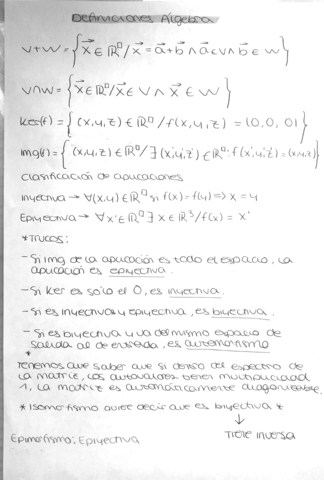 Definiciones Álgebra
V+W = { x⃗ ∈ ℝ^□ / x⃗ = a⃗ + b⃗ ∧ a⃗ ∈ V ∧ b⃗ ∈ W }
V∩W = { x⃗ ∈ ℝ^□ / x⃗ ∈ V ∧ x⃗ ∈ W }
Ker(f) = { (x,y,z) ∈ ℝ^□ / f(x,y,z) = (0,0,0) }
Img(f) = { (x,y,z) ∈ ℝ^□ / ∃ (x',y',z') ∈ ℝ^□ : f(x',y',z') = (x,y,z) }
Clasificación de aplicaciones
Inyectiva → ∀(x,y) ∈ ℝ^□ si f(x) = f(y) => x = y
Epiyectiva → ∀ x' ∈ ℝ^□ ∃ x ∈ ℝ³ / f(x) = x'
* Trucos:
- Si img de la aplicación es todo el espacio, la
aplicación es epiyectiva.
- Si Ker es solo el 0, es inyectiva.
- Si es inyectiva y epiyectiva, es biyectiva.
- Si es biyectiva y va del mismo espacio de
salida al de entrada, es automorfismo
*
Tenemos que saber que si dentro del espectro de
la matriz, los autovalores tienen multiplicidad
1, la matriz es automáticamente diagonalizable.
* Isomorfismo quiere decir que es biyectiva *
↓
Tiene inversa
Epimorfismo: Epiyectiva